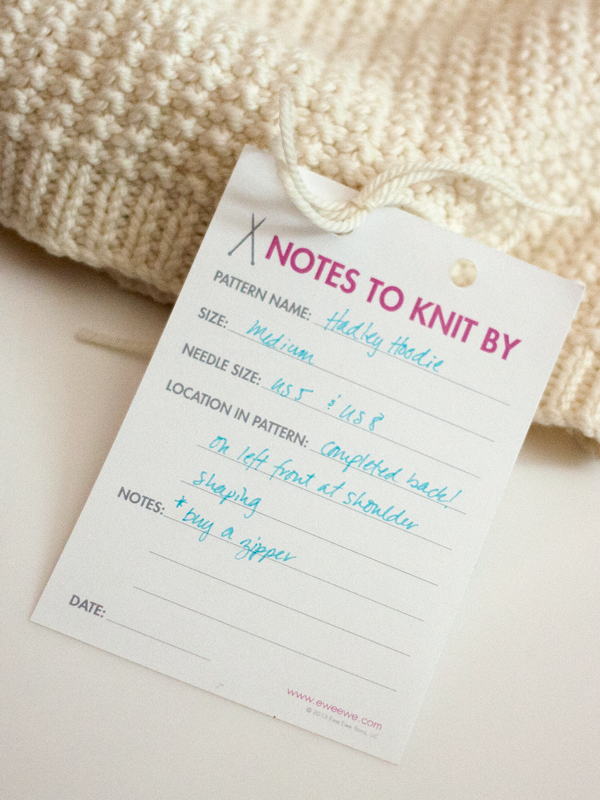 NOTES TO KNIT BY
PATTERN NAME: Hadley Hoodie
SIZE: Medium
NEEDLE SIZE: US 5 & US 8
LOCATION IN PATTERN: Completed back!
on left front at shoulder
shaping
NOTES: *buy a zipper
DATE:
www.eweewe.com
© 2013 Ewe Ewe Yarns, LLC